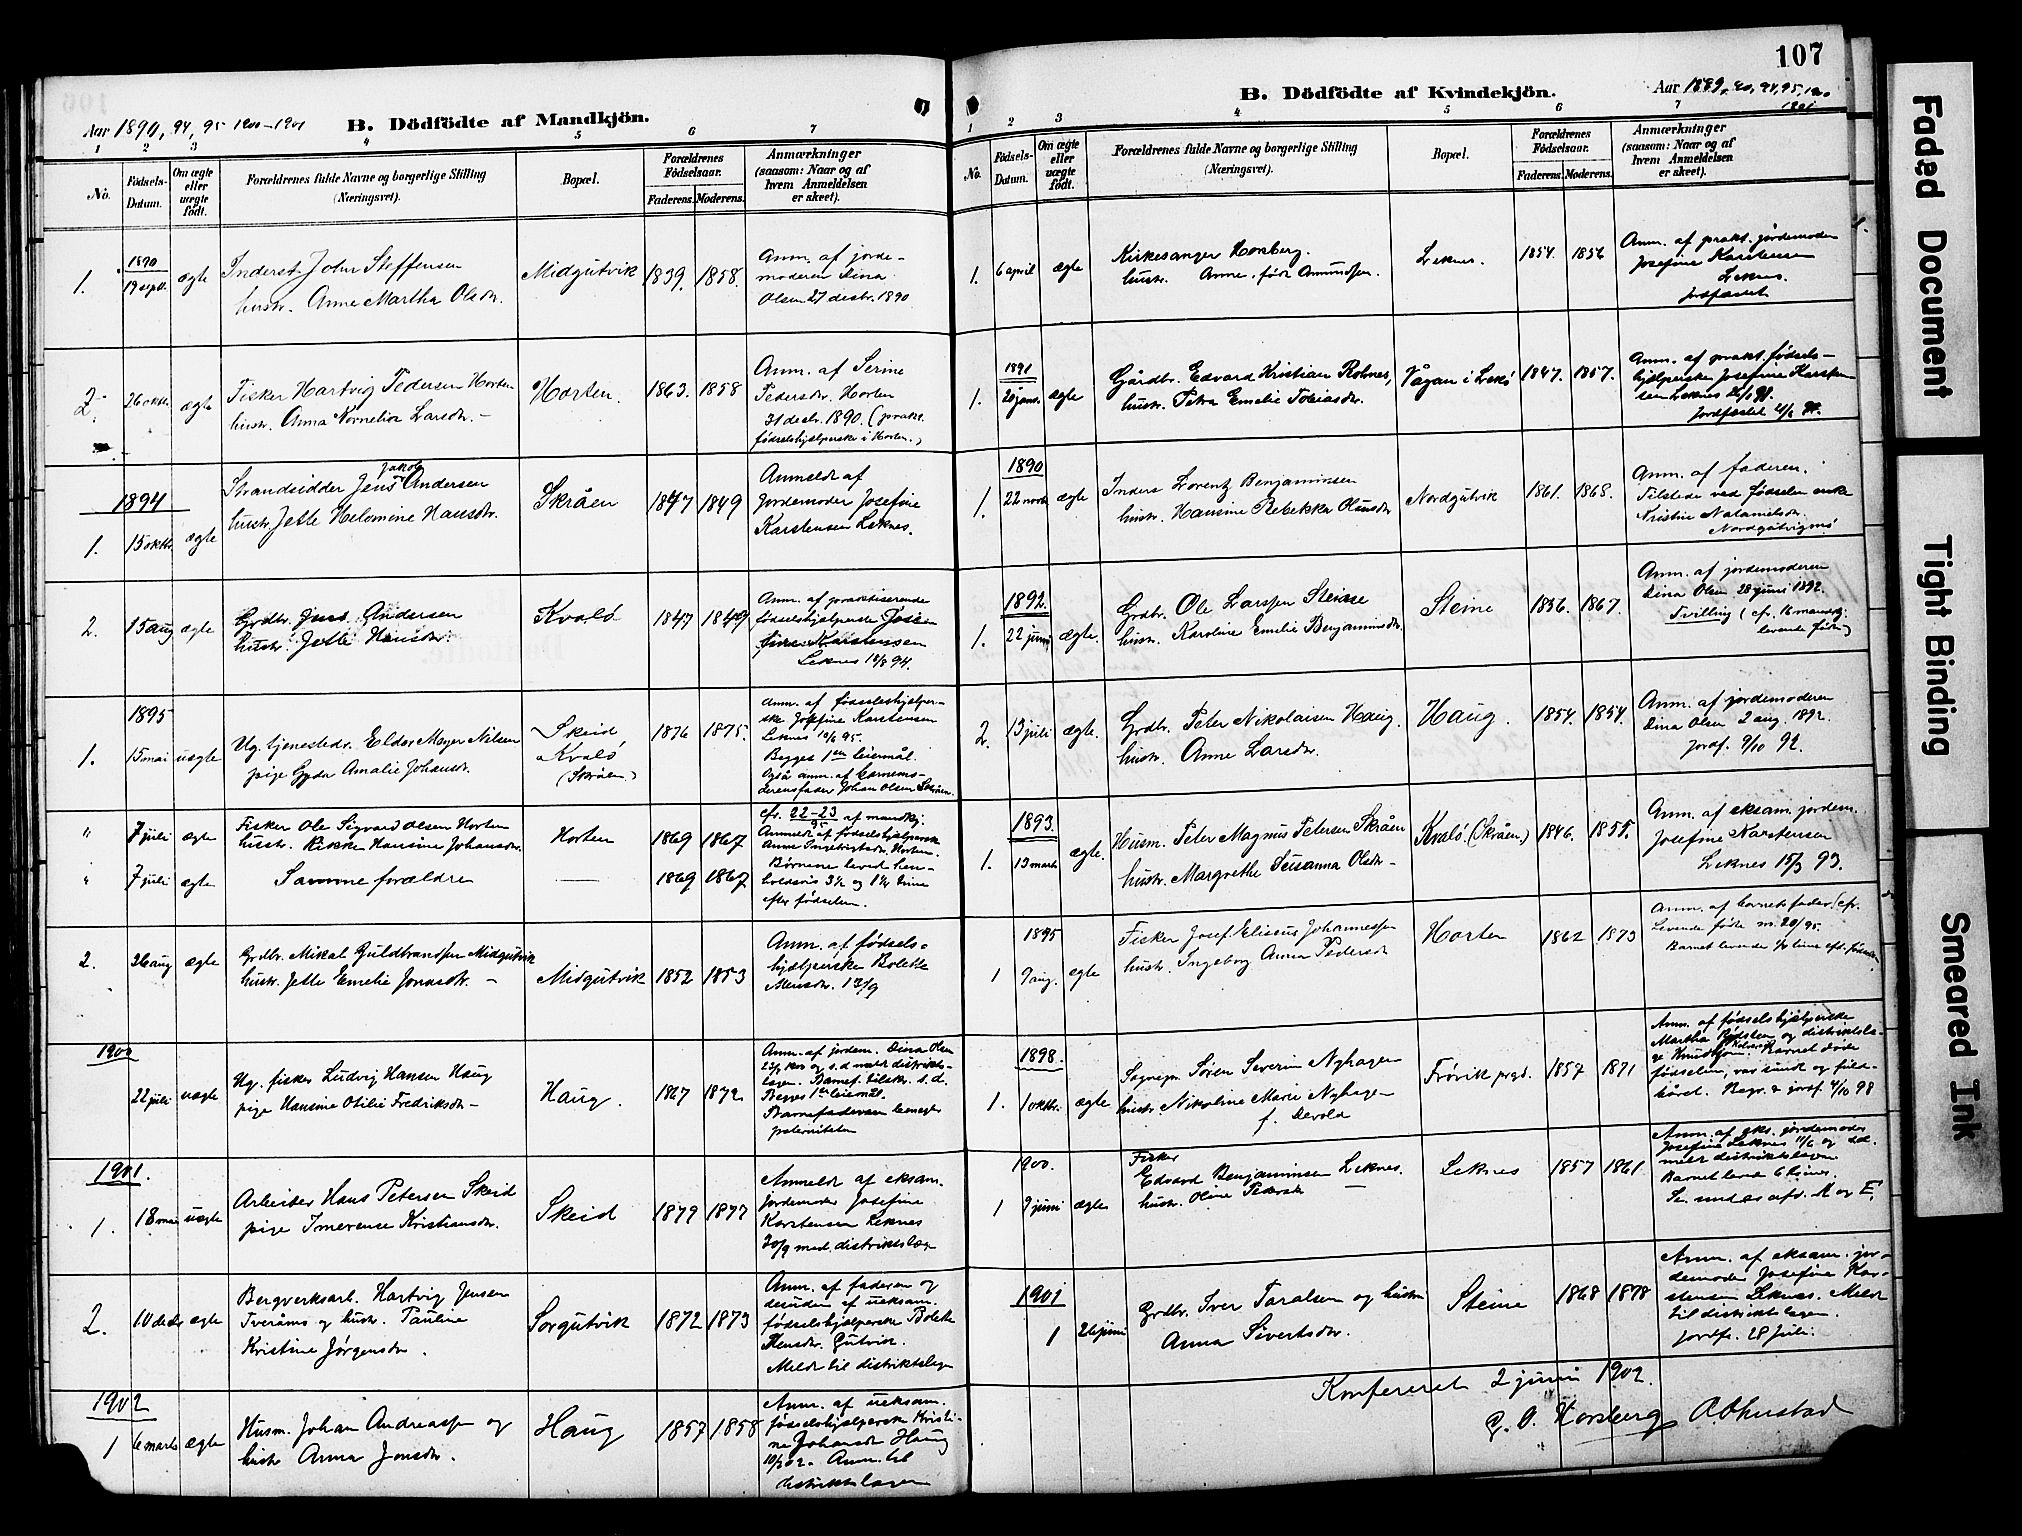 107
Aar 1890, 94, 95 1900-1901
B. Dödfödte af Mandkjön.
1 2 3 4 5 6 7
No.
Födsels-Datum.
Om ægte eller uægte födt.
Forældrenes fulde Navne og borgerlige Stilling (Næringsvei).
Bopæl.
Forældrenes Födselsaar.
Faderens. Moderens.
Anmærkninger (saasom: Naar og af hvem Anmeldelsen er skeet).
1. 1890 19 septb. ægte
Inderst John Steffensen
hustr. Anne Martha Olsdtr.
Midgutvik 1839. 1858.
Anm. af jorde-
moderen Dina
Olsen 27 decbr. 1890
2. 26 oktbr. ægte
Fisker Hartvig Pedersen Horten
hustr. Anna Kornelia Larsdtr. -
Horten. 1863. 1858
Anm. af Serine
Pedersdtr. Horten
31 decbr. 1890. (prakt.
fødselshjælperske i Horten.)
1894
1. 15 oktbr. ægte
Strandsidder Jens Jakob Andersen
hustr. Jette Helomine Hansdtr.
Skråen 1847 1849
Anmeldt af
Jordemoder Josefine
Karstensen Leknes.
2. 15 aug ægte
Grdbr. Jens Andersen
hustr. Jette Hansdtr.
Kvalø 1847 1849
Anm. af praktiserende
fødselshjælperske Jose-
fine Karstensen
Leknes 18/8 94.
1895
1. 15 mai uægte
Ug. tjenestedr. Eldor Meyer Nilsen
pige Gyda Amalie Johansdtr.
Skeid
Kvalø
(Skråen)
1876 1875.
Anm. af fødselshjelper-
ske Josefine Karstensen
Leknes 10/6 95.
Begges 1ste leiermål.
Også anm. af barnemo-
derens fader Johan Olsen Skråen.
" 7 juli ægte
Fisker Ole Sigvard Olsen Horten
hustr. Rikke Hansine Johansdtr.
Horten 1869 1867
cfr. 22-23/95 af mandkj.
Anmeldt af fødselshjelperske
Anne Ingebrigtsdtr. Horten.
" 7 juli ægte
Samme forældre
— 1869 1867
Børnene leved hen-
holdsvis 3½ og 1¼ time
efter fødselen.
2. 26 aug ægte
Grdbr. Mikal Guldbrandsen Midgutvik
hustr. Jette Emelie Jonasdtr. -
Midgutvik 1852 1853
Anm. af fødsels-
hjælperske Bolette
Mensdtr. 12/9
1900
22 juli uægte
Ug. fisker Ludvig Hansen Haug
pige Hansine Otilie Fredriksdtr. -
Haug. 1872
Anm. af jordem. Dina Olsen
Begges 1ste leiermål.
Barnefaderen benegter
paterniteten
1901.
1. 18 mai uægte
Arbeider Hans Petersen Skeid
pige Imerense Kristiansdtr.
Skeid 1879 1877
Anmeldt af eksam.
jordemoder Josefine
Karstensen Leknes
20/9 med. distriktslæge
2. 10 decbr ægte
Bergverksarb. Hartvig Jensen
Tverånes og hustr. Pauline
Kristine Jørgensdtr.
Sørgutvik 1872 1873
Anm. af faderen og
desuden af ueksam.
fødselshjælperske Bolette
Mensdtr. Gutvik.
Meldt til distriktslægen
1902
1 6 marts ægte
Husm. Johan Andreassen og
hustr Anna Jonsdtr.
Haug 1857 1858
Anm. af ueksam.
fødselshjælperske Kristi-
ne Johansdtr Haug
10/3 02. Anm. til
distriktslægen
B. Dödfödte af Kvindekjön.
Aar 1889, 90, 94, 95, 1900 1901
1 2 3 4 5 6 7
No.
Födsels-Datum.
Om ægte eller uægte födt.
Forældrenes fulde Navne og borgerlige Stilling (Næringsvei).
Bopæl.
Forældrenes Födselsaar.
Faderens. Moderens.
Anmærkninger (saasom: Naar og af hvem Anmeldelsen er skeet).
1. 6 april ægte
Kirkesanger Korsberg.
hustr. Anne, født Amundsen.
Leknes. 1854. 1856
Anm. af prakt. jordemoder
Josefine Karstensen
Leknes.
jordfæstet
1891
1. 20 jan. ægte
Gårdbr. Edvard Kristian Rolnes,
hustr. Petra Emelie Tobiasdtr.
Vågan i Lekø 1847. 1857.
Anm. af prakt. fødsels-
hjælperske Josefine Karsten-
sen Leknes
1890
1. 22 novbr ægte
Inders Lorentz Benjaminsen
hustr. Hansine Rebekka Olausdtr
Nordgutvik 1861. 1868.
Anm. af faderen.
Tilstede ved fødselen enke
Kristine Natanielsdtr.
Nordgutvigmo
1892.
1. 22 juni ægte.
Grdbr. Ole Larssen Steine
hustr. Karoline Emelie Benjaminsdtr.
Steine 1836. 1867.
Anm. af jordemoderen
Dina Olsen 28 juni 1892.
Tvilling (cfr. 16 mandkj.
levende født)
2. 13 juli ægte.
Grdbr. Peter Nikolaisen Haug.
hustr. Anne Larsdtr.
Haug. 1854. 1854.
Anm. af jordemoderen
Dina Olsen 2 aug. 1892.
Jordf. 9/10 92.
1893.
1. 13 marts ægte.
Husm. Peter Magnus Petersen Skråen
hustr. Margrethe Susanna Olsdtr -
Kvalø (Skråen.) 1846. 1855.
Anm. af eksam. jordem.
Josefine Karstensen
Leknes 15/3 93.
1895
1 9 aug. ægte
Fisker Josef Eliseus Johannessen
hustr. Ingeborg Anna Pedersdtr
Horten 1862 1873
Anm. af barnets fader (cfr.
Levende fødte nr. 20/95.
1898.
1. 1 oktbr. ægte
Søren Severin Nyhagen
hustr. Nikoline Marie Nyhagen
f. Devold
Frøvik prgd. 1857 1871
Anm. af fødselshjælperske
Martha Rødsten og distriktslæ-
ge Knudtzon. Barnet døde
Begr. & jordf. 4/10 98
1900.
1 9 juni ægte
Fisker
Edvard Benjaminsen Leknes.
hustr. Oline Pedersdtr —
Leknes 1857 1861.
Anm. af eks. jordemoder
Josefine Leknes 11/6 og s.d.
meldt distriktslægen
Barnet levde 6 timer.
Se under afd. M og E.
1901
1 26 juni
Grdbr. Iver Taralsen og hustru
Anna Sivertsdtr.
Steine 1868 1878
Anm. af eksam. jor-
demoder Josefine Kar-
stensen Leknes. Meldt
til distriktslægen.
jordf. 28 juli.
Konfereret 2 juni 1902.
G. O. Korsberg
Faded Document
Tight Binding
Smeared Ink